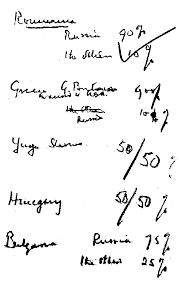 Roumania
Russia 90%
The others 10%
Greece G. Britain 90%
in accord with U.S.A.
The others
Russia 10%
Yugoslavia 50/50%
Hungary 50/50%
Bulgaria Russia 75%
The others 25%